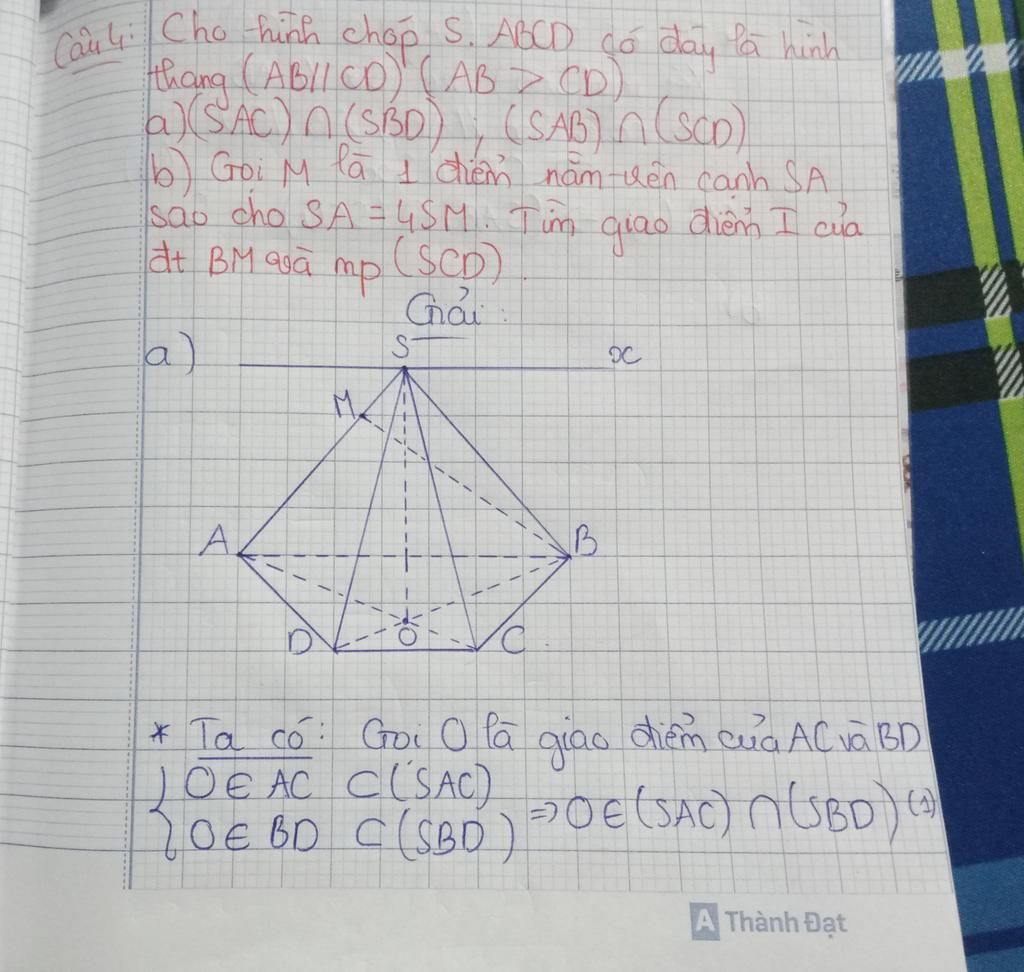 Câu 4: Cho hình chóp S. ABCD có đáy là hình
thang (AB//CD) (AB > CD)
a) (SAC) ∩ (SBD) , (SAB) ∩ (SCD)
b) Gọi M là 1 điểm nằm trên cạnh SA
sao cho SA = 4SM. Tìm giao điểm I của
đt BM và mp (SCD)
Giải:
a)
S
x
M
A
B
D
O
C
* Ta có: Gọi O là giao điểm của AC và BD
{ O ∈ AC ⊂ (SAC)
{ O ∈ BD ⊂ (SBD) => O ∈ (SAC) ∩ (SBD) (1)
A Thành Đạt